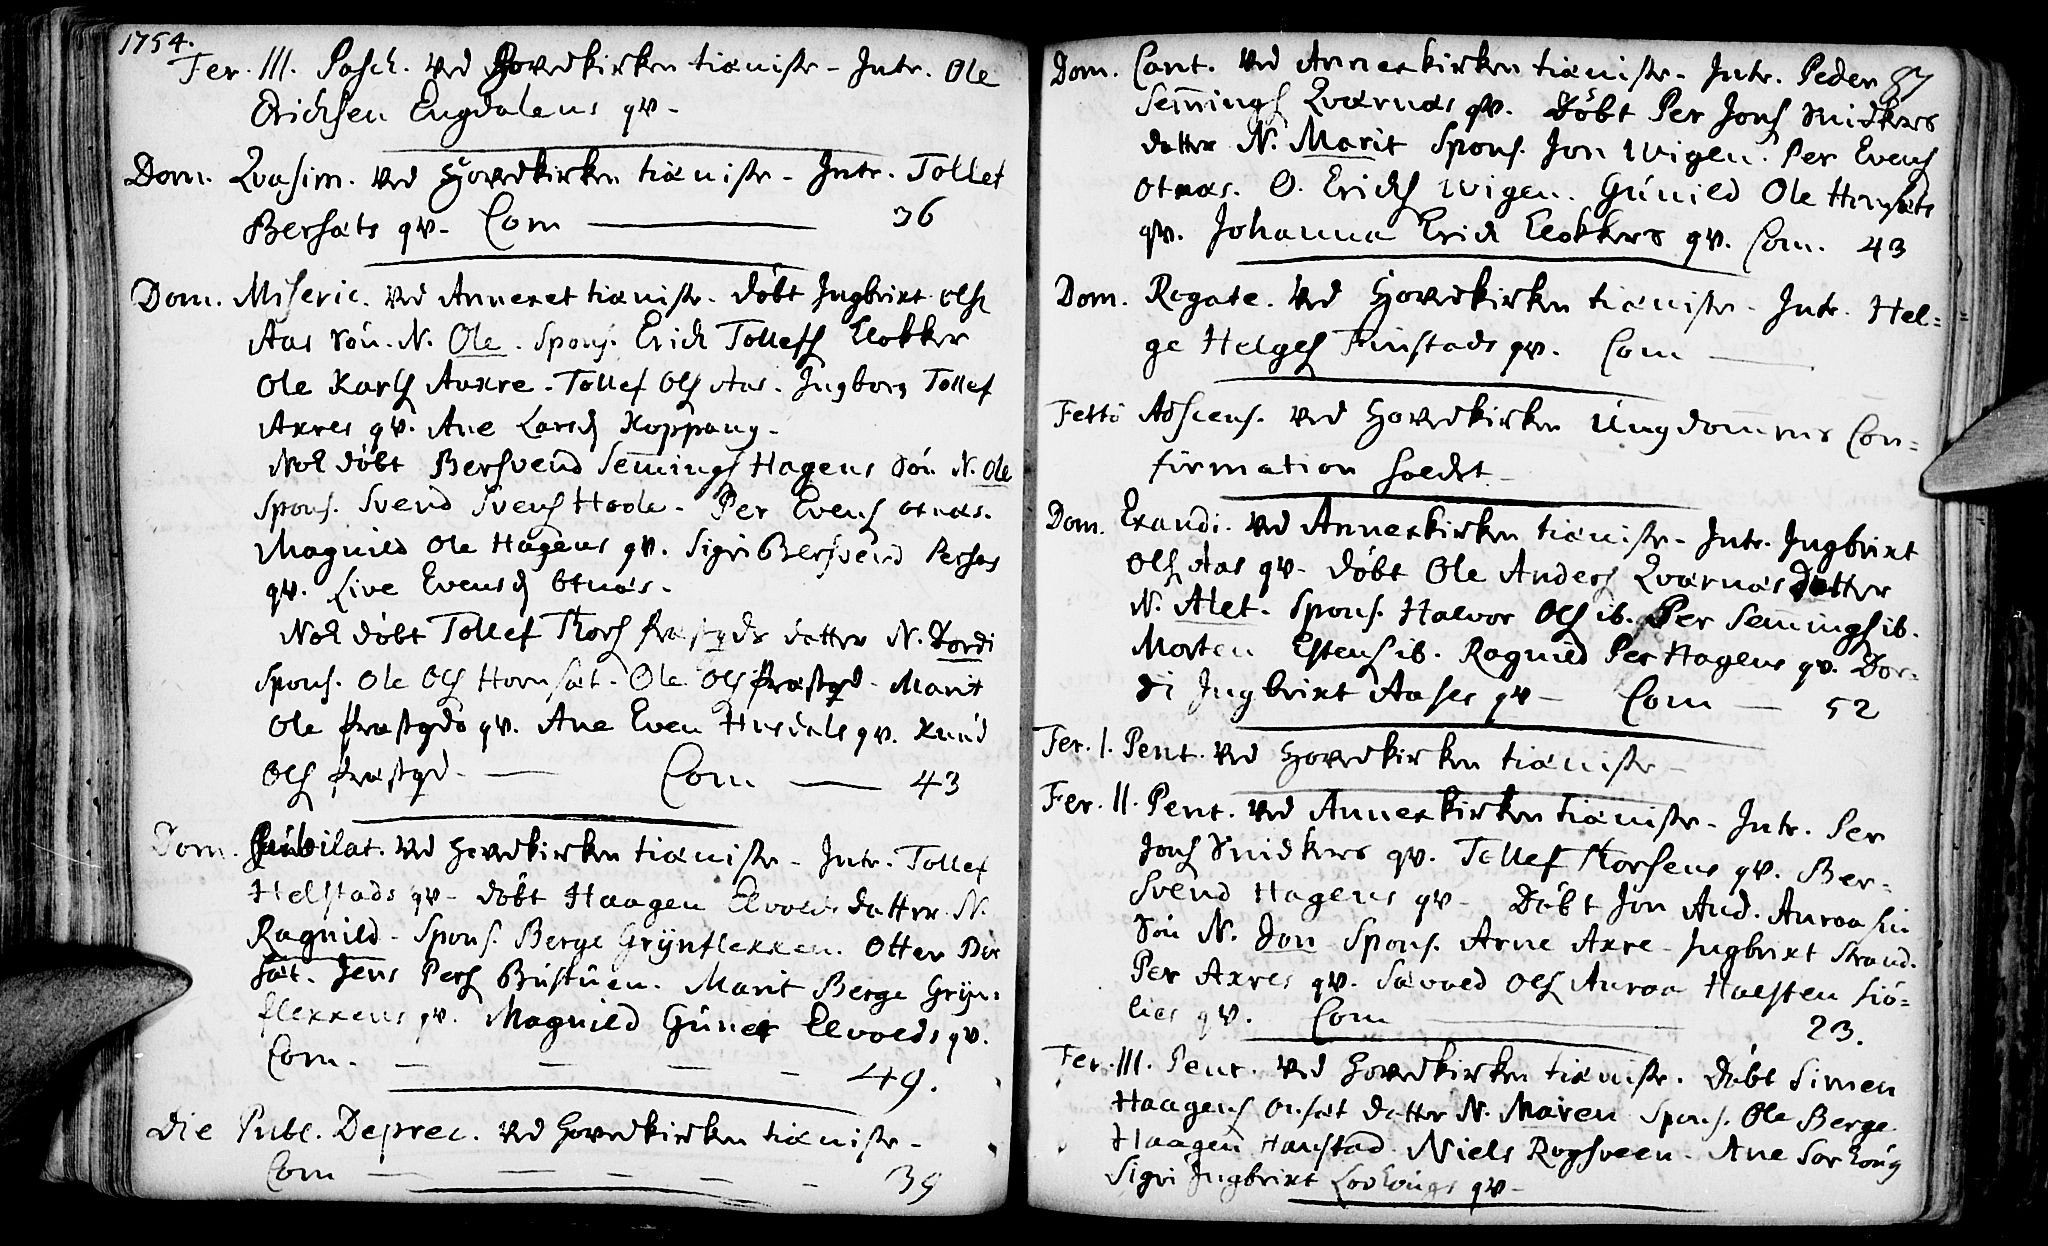 1754.
Fer. III. Pasch. ved Hovedkirken tieniste - Intr. Ole
Erichsen Engdalens qv-
Dom. Qvasim. ved Hovedkirken tieniste - Intr. Tollef
Bersæts qv- Com 36
Dom. Miseric. ved Annexet tieniste. døbt Ingbrixt Olss
Aas Søn. N. Ole. Spons. Erich Tollefs Klokker
Ole Karls Aaxre. Tollef Ols Aas. Ingborg Tollef
Axres qv. Ane Larsd Koppang-
Nok døbt Bersvend Semmings Hagens Søn N. Ole
Spons. Svend Svens Hoole. Per Evens otnæs.
Magnild Ole Hagens qv. Sigri Bersvend Persas
qv. Live Evensd Otnæs.
Nok døbt Tollef Thors Præstgds datter N. Dordi
Spons. Ole Ols Hornsæt. Ole Ols Præstgd. Marit
Ole Præstgds qv. Ane Even Husdals qv. Knud
Ols Præstgd. Com 43
Dom. Jubilat. ved Hovedkirken tieniste - Intr. Tollef
Helstads qv- døbt Haagen Elvolds datter N.
Ragnild - Spons. Berge Grÿnflexxen. Otter Bir
sæt. Jens Pers Bustuen. Marit Berge Grÿn-
flexxens qv. Magnild Guner Elvolds qv.
Com. 49.
Die Publ. Deprec. ved Hovedkirken tieniste-
Com 39
87
Dom. Cant. ved Annexkirken tieniste- Intr. Peder
Semmings Qværnæs qv. Døbt Per Jons Snidkers
datter N. Marit Spons. Jon Wigen. Per Evens
Otnæs. O. Erichs Wigen. Gunild Ole Hornsæts
qv. Johanna Erich Klokkers qv. Com. 43
Dom. Rogate. ved Hovedkirken tieniste - Intr. Hel-
ge Helges Finstads qv. Com
Festo Adscens. ved Hovedkirken Ungdommens Con-
firmation holdt.
Dom. Exaudi. ved Annexkirken tieniste- Intr. Ingbrixt
Ols Aas qv- døbt Ole Anders Qværnæs Datter
N. Alet. Spons. Halvor Ols ib. Per Semmings ib.
Morten Estens ib. Ragnild Per Hagens qv. Dor-
di Ingbrixt Aases qv- Com 52
Fer. I. Pent. ved Hovedkirken tieniste-
Fer. II. Pent. ved Annexkirken tieniste- Intr. Per
Jons Snidkers qv. Tollef Thorsens qv. Ber-
svend Hagens qv- Døbt Jon And. Auraasen
Søn N. Jon Spons. Arne Axre- Ingbrixt Strand.
Per Axres qv. Sævold Ols Auraa Halsten Siö-
lies qv. Com 23.
Fer. III. Pent. ved Hovedkirken tieniste. døbt Simen
Haagens Onsæt datter N. Maren Spons. Ole Berge.
Haagen Hanstad. Niels Rogsveen. Ane
Sigri Ingbrixt qv-